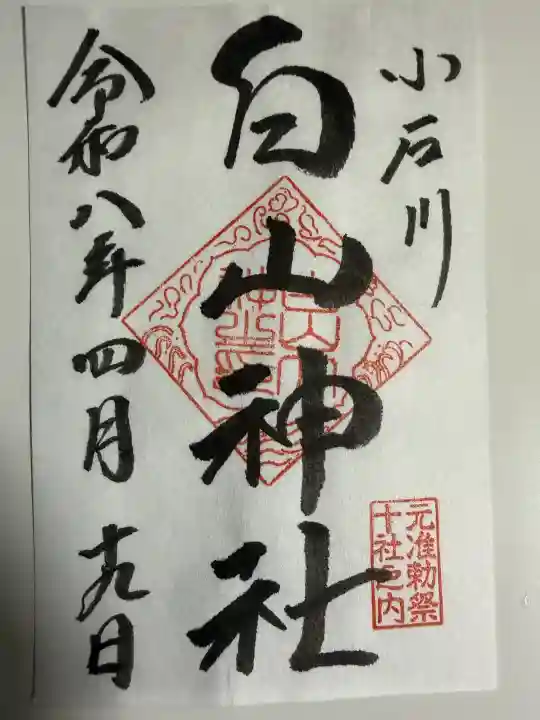 小石川
白山神社
令和八年四月十九日
元准勅祭
十社之内